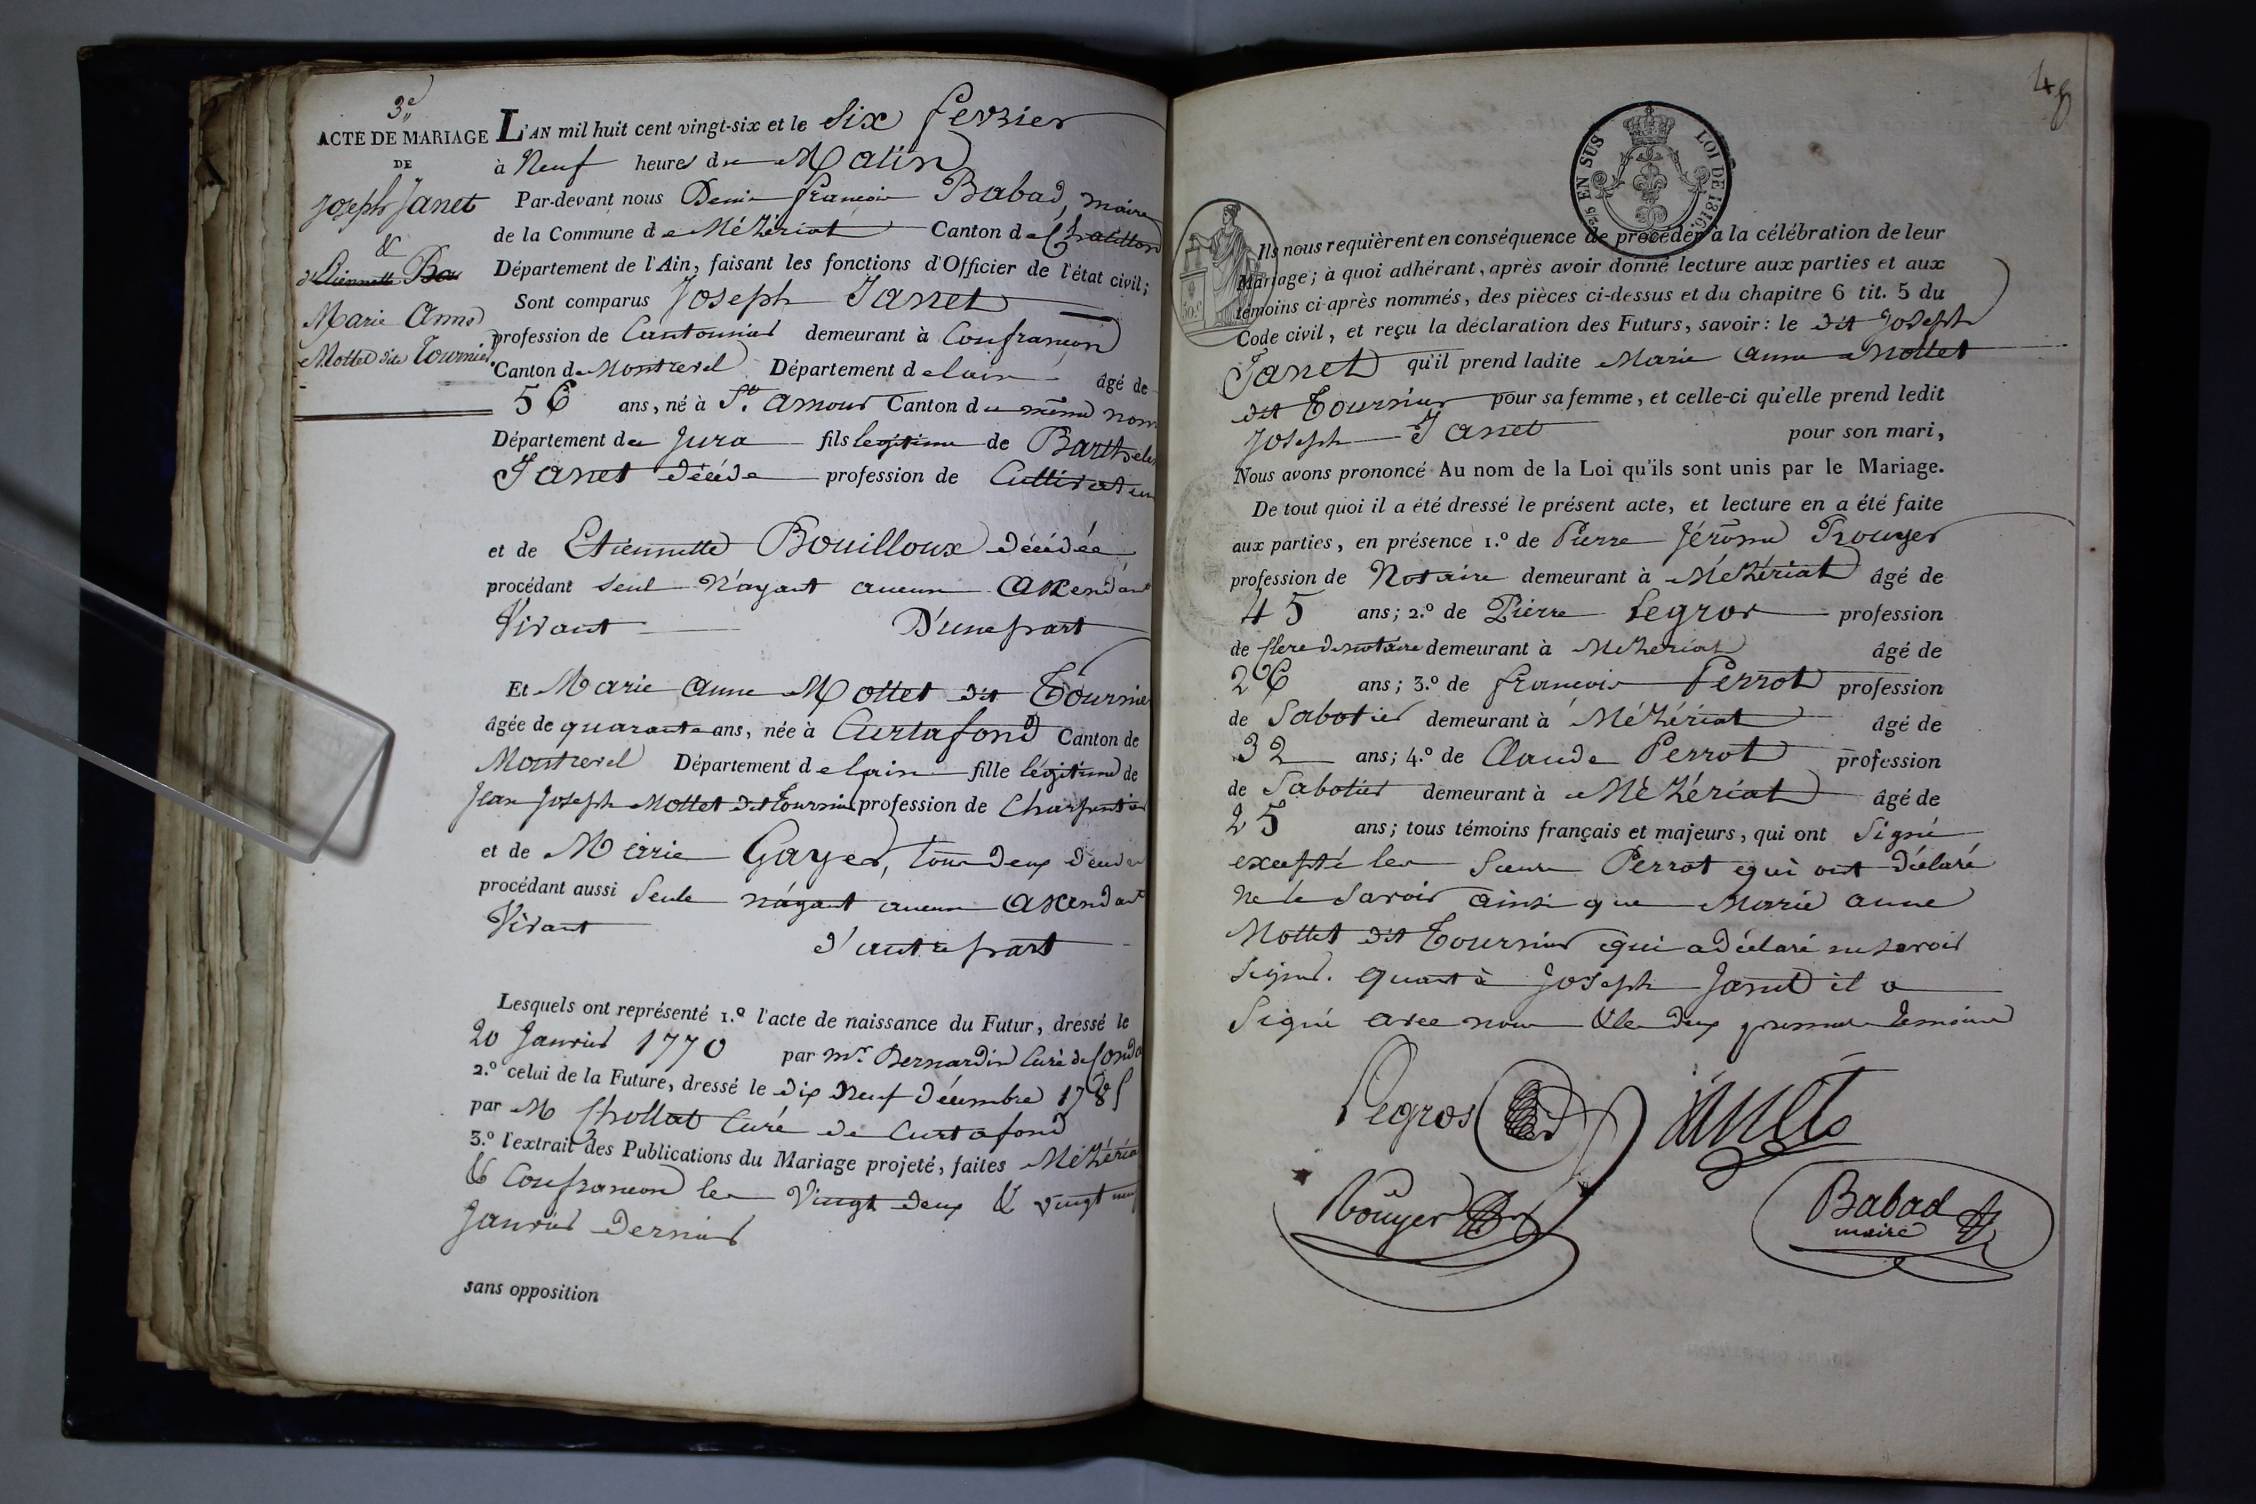 3e
ACTE DE MARIAGE
DE
Joseph Janet
&
d'Etiennette Bou
Marie Anne
Mottet dite Tournier
L'AN mil huit cent vingt-six et le Six fevrier
à Neuf heures du Matin
Par-devant nous Denis françois Babad, maire
de la Commune de Mézériat Canton de Chatillon
Département de l'Ain, faisant les fonctions d'Officier de l'état civil;
Sont comparus Joseph Janet
profession de Cantonnier demeurant à Confrançon
Canton de Montrevel Département de lain âgé de
56 ans, né à St. amour Canton du même nom
Département du Jura fils legitime de Barthelem
Janet décédé profession de Cultivateur
et de Etiennette Bouilloux décédée
procédant seul N'ayant aucun ascendant
Vivant D'une part
Et Marie anne Mottet dit Tournier
âgée de quarante ans, née à Curtafond Canton de
Montrevel Département de lain fille légitime de
Jean Joseph Mottet dit Tournier profession de Charpentier
et de Marie Gayer, tous deux décédés
procédant aussi Seule n'ayant aucun ascendant
Vivant
d'autre part
Lesquels ont représenté 1.º l'acte de naissance du Futur, dressé le
20 Janvier 1770 par mr. Bernardin Curé de Conda
2.º celui de la Future, dressé le dix Neuf décembre 1785
par M Chollat Curé de Curtafond
3.º l'extrait des Publications du Mariage projeté, faites Mézéria
& Confrançon les Vingt deux & vingt neuf
Janvier Dernier
sans opposition
48
25 EN SUS LOI DE 1816
50 c
Ils nous requièrent en conséquence de procéder à la célébration de leur
Mariage; à quoi adhérant, après avoir donné lecture aux parties et aux
témoins ci-après nommés, des pièces ci-dessus et du chapitre 6 tit. 5 du
Code civil, et reçu la déclaration des Futurs, savoir: le dit Joseph
Janet qu'il prend ladite Marie anne Mottet
dit Tournier pour sa femme, et celle-ci qu'elle prend ledit
Joseph Janet pour son mari,
Nous avons prononcé Au nom de la Loi qu'ils sont unis par le Mariage.
De tout quoi il a été dressé le présent acte, et lecture en a été faite
aux parties, en présence 1.º de Pierre Jérôme Rouyer
profession de Notaire demeurant à Mézériat âgé de
45 ans; 2.º de Pierre Legros profession
de Clerc de notaire demeurant à Mezeriat âgé de
26 ans; 3.º de françois Perrot profession
de Sabotier demeurant à Mézériat âgé de
32 ans; 4.º de Claude Perrot profession
de Sabotier demeurant à Mézériat âgé de
25 ans; tous témoins français et majeurs, qui ont Signé
excepté les Sieurs Perrot qui ont déclaré
ne le Savoir ainsi que Marie anne
Mottet dit Tournier qui a déclaré ne savoir
signer. quant à Joseph Janet il a
Signé avec nous & les deux premiers temoins
Legros
Rouyer
Babad
maire